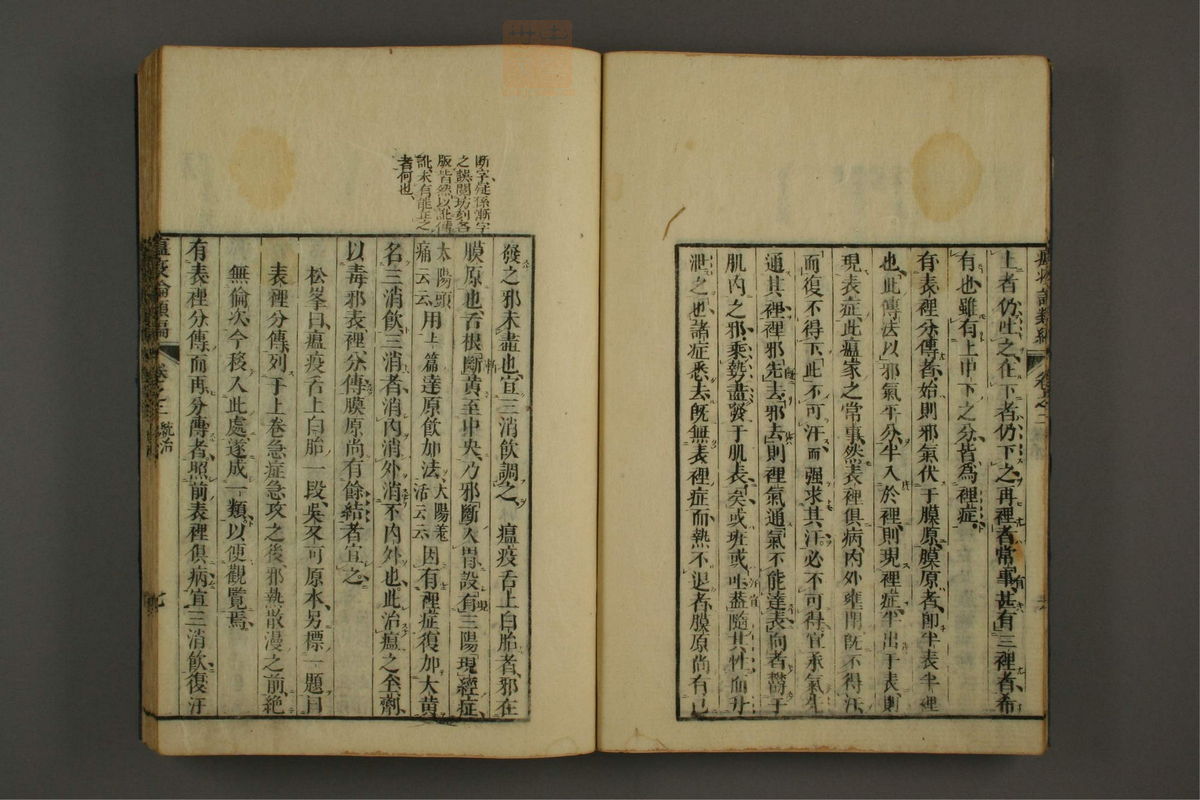 上者仍吐之在下者仍下之再裡者常事甚有三裡者希
有也雖有上中下之分皆為裡症
有表裡分傳者始則邪氣伏于膜原膜原者即半表半裡
也此傳法以邪氣平分半入於裡則現裡症半出于表則
現表症此瘟家之常事然表裡俱病内外壅閉既不得汗
而復不得下此不可汗而强求其汗必不可得宜承氣先
通其裡裡邪先去邪去則裡氣通氣不能達表向者鬱于
肌内之邪乘勢盡發于肌表矣或斑或吐盖隨其性而升
泄之也諸症悉去既無表裡症而熱不退者膜原尚有已
發之邪未盡也宜三消飲調之 瘟疫舌上白胎者邪在
膜原也舌根斷黄至中央乃邪斷入胃設有三陽現經症
太陽頭痛云云用上篇達原飲加法大陽羗活云云因有裡症復加大黄
名三消飲三消者消内消外消不内外也此治瘟之全劑
以毒邪表裡分傳膜原尚有餘結者宜之
松峯曰瘟疫舌上白胎一段吳又可原本另標一題目
表裡分傳列于上卷急症急攻之後邪熱散漫之前絶
無倫次今移入此處遂成一類以便觀覧焉
有表裡分傳而再分傳者照前表裡俱病宜三消飲復汗
断字疑係漸字
之誤閱坊刻各
版皆然以訛傳
訛未有能正之
者何也
瘟疫論類編
卷之二
統治
七